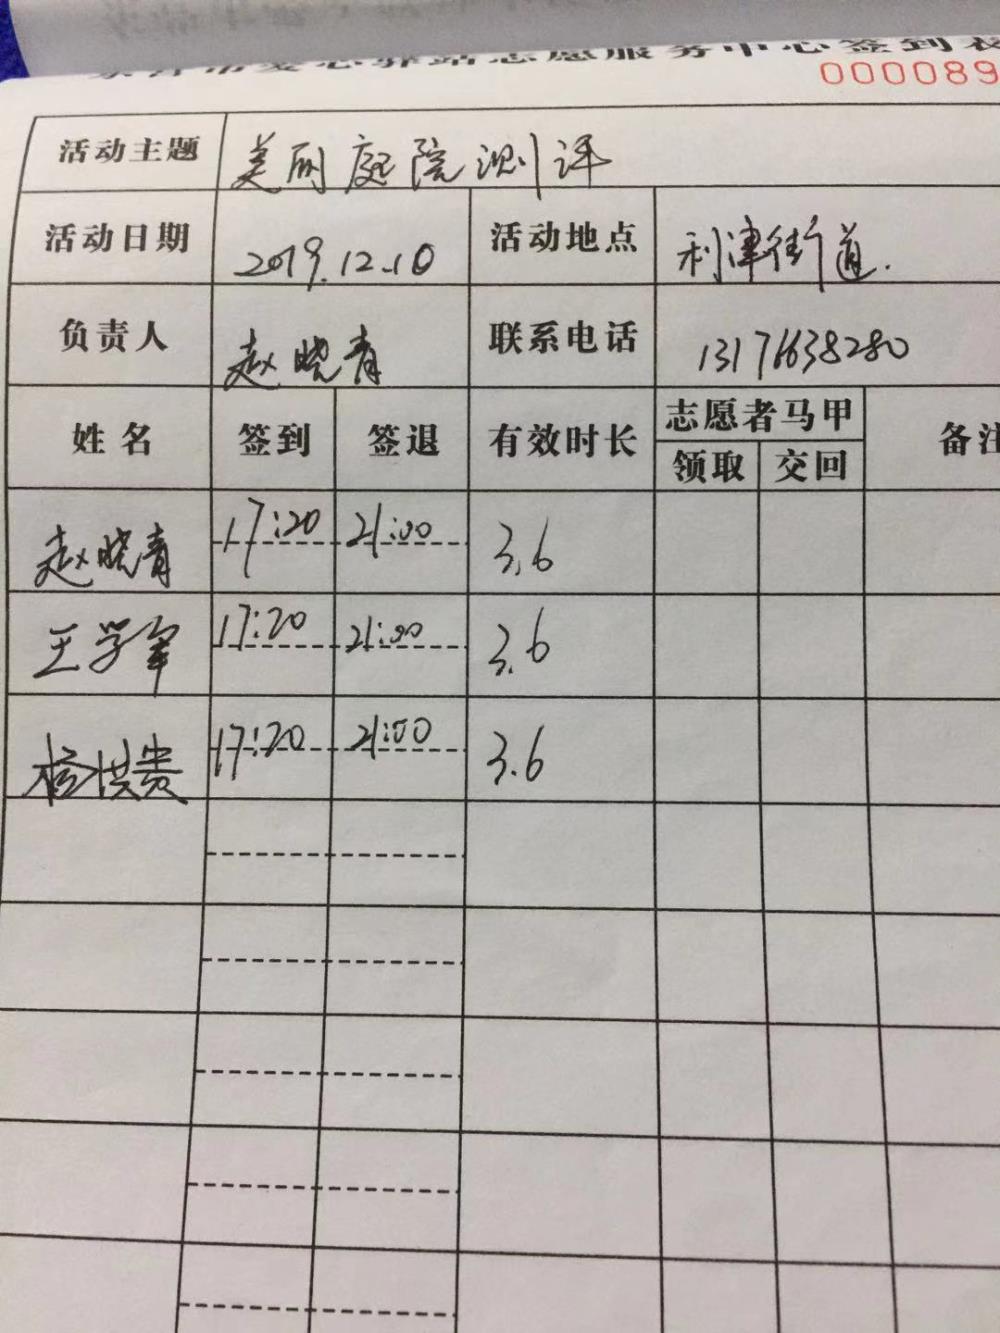 爱心驿站志愿服务中心签到表
000089
活动主题 美丽庭院测评
活动日期 2019.12.10 活动地点 利津街道.
负责人 赵晓青 联系电话 13176638280
姓名 签到 签退 有效时长 志愿者马甲 备注
领取 交回
赵晓青 17:20 21:00 3.6
王学军 17:20 21:00 3.6
杨洪贵 17:20 21:00 3.6